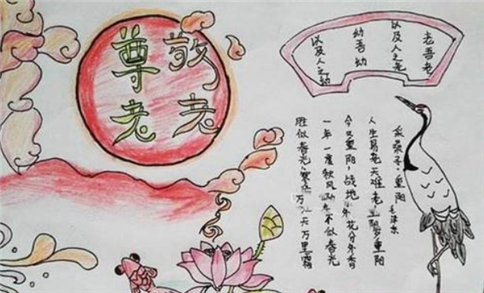 敬老
尊老
老吾老
以及人之老
幼吾幼
以及人之幼
采桑子·重阳
毛泽东
人生易老天难老 岁岁重阳
今又重阳，战地黄花分外香
一年一度秋风劲 不似春光
胜似春光，万里霜